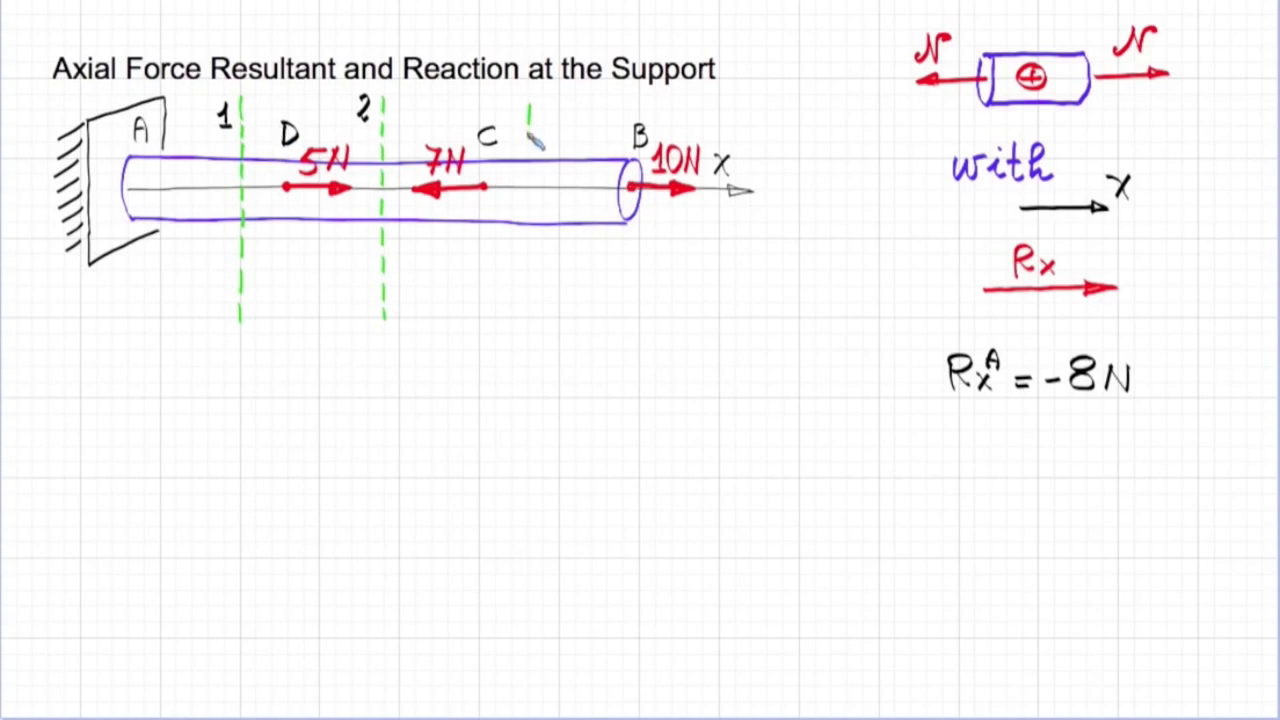 Axial Force Resultant and Reaction at the Support
A 1 D 2 C B
5N 7N 10N X
N N
+
with
X
Rx
RxA = -8N